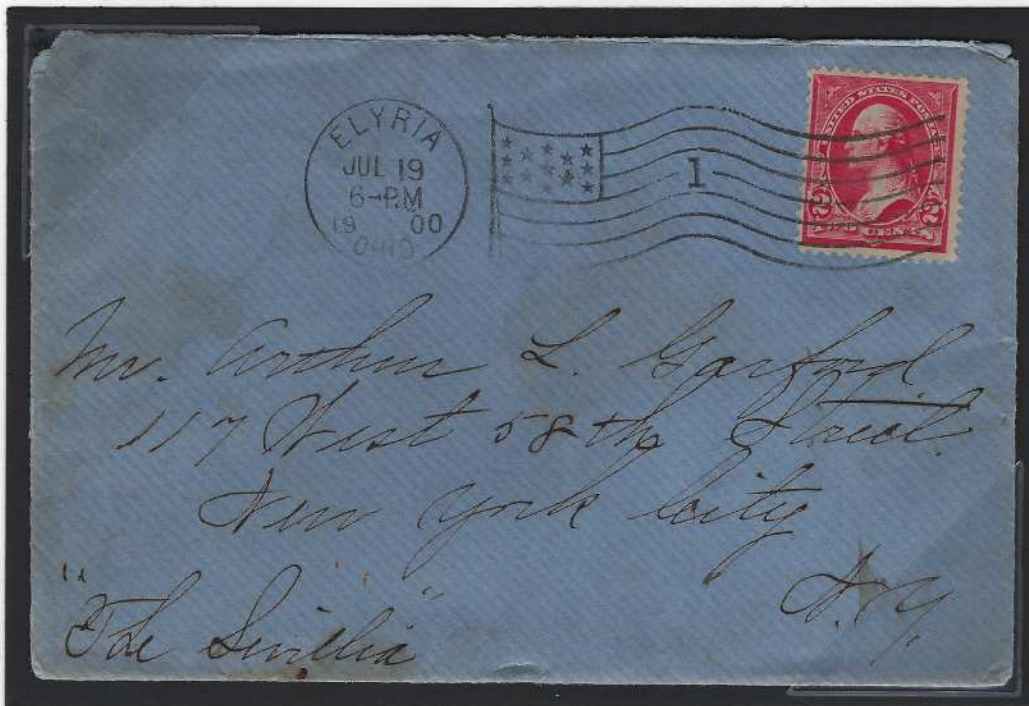 ELYRIA
JUL 19
6-P.M
19 00
OHIO
1
UNITED STATES POSTAGE
2 2
CENTS
Mr. Arthur L. Garford
117 West 58th Street
New York City
N.Y.
"The Sevillia"